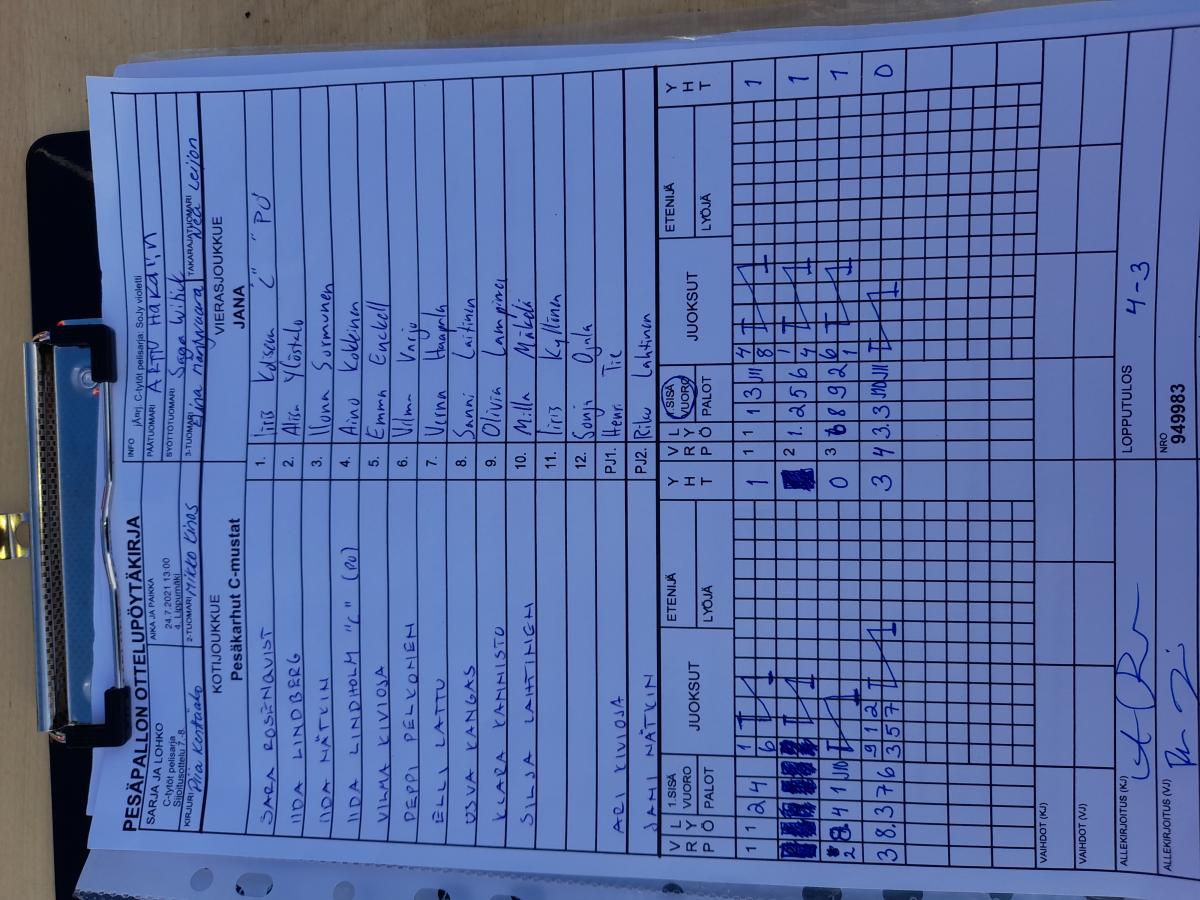 PESÄPALLON OTTELUPÖYTÄKIRJA
SARJA JA LOHKO
C-tytöt pelisarja
Sijoitusottelu 7.-8.
AIKA JA PAIKKA
24.7.2021 13:00
4. Lippumäki
INFO jÄrj. C-tytöt pelisarja SoJy violetti
PÄÄTUOMARI ARTTU HAKALIN
SYÖTTÖTUOMARI Saga Wihik
KIRJURI Piia Kentäaho
2-TUOMARI Mikko Kinos
3-TUOMARI Elina Harjuvaara
TAKARAJATUOMARI Nea Leijon
KOTIJOUKKUE
Pesäkarhut C-mustat
VIERASJOUKKUE
JANA
SARA ROSENQVIST 1. Iiris Kalseun "C" PO
IIDA LINDBERG 2. Alisa Ylöstalo
IIDA NÄTKIN 3. Iluna Sormunen
IIDA LINDHOLM "C" (PO) 4. Aino Kokkinen
VILMA KIVIOJA 5. Emma Enckell
PEPPI PELKONEN 6. Vilma Varjo
ELLI LATTU 7. Verna Haapala
USVA KANGAS 8. Sanni Laitinen
KLARA KANNISTO 9. Olivia Lampinen
SILJA LAHTINEN 10. Milla Mäkelä
11. Iiris Kyllönen
12. Sonja Ojala
ARI KIVIOJA PJ1. Henri Tie
JAMI NÄTKIN PJ2. Riku Lahtinen
VRP LYÖ 1.SISÄVUORO PALOT JUOKSUT ETENIJÄ LYÖJÄ YHT
VRP LYÖ 1.SISÄVUORO PALOT JUOKSUT ETENIJÄ LYÖJÄ YHT
1 1 2 4 1 6 1
1 1 1 3 4 8 1
2 1. 2 5 6 1 4 1
2 4 1 0
3 6 8 9 2 6 1 1
3 8. 3 7 6 9 1 2 3 5 7 3
4 3. 3 0
VAIHDOT (KJ)
VAIHDOT (VJ)
ALLEKIRJOITUS (KJ)
LOPPUTULOS 4-3
ALLEKIRJOITUS (VJ)
NRO
949983